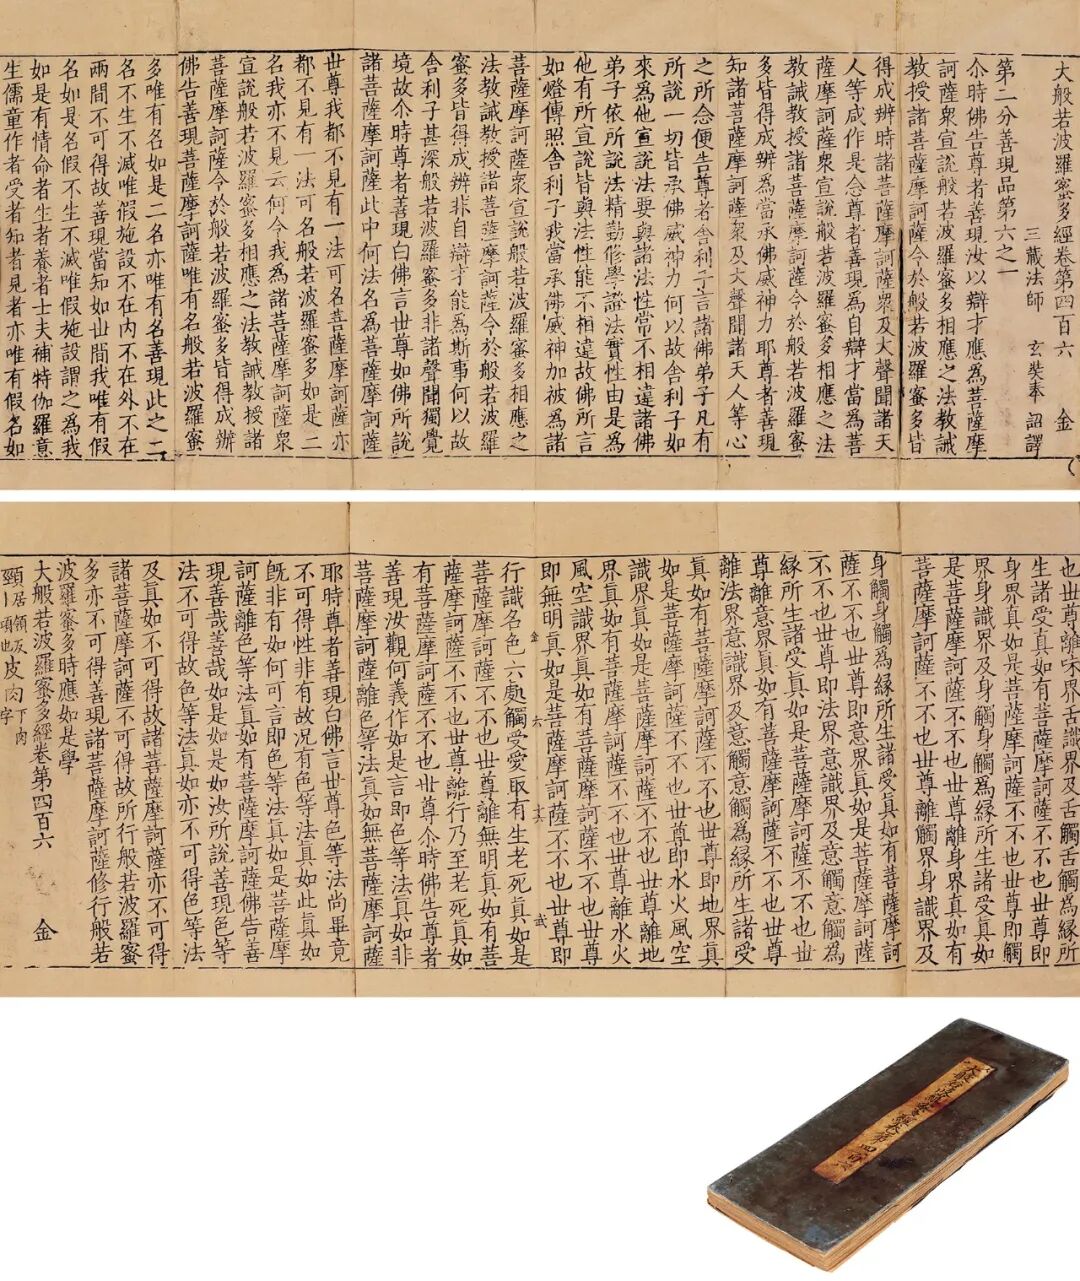 大般若波羅蜜多經卷第四百六 金
三藏法師 玄奘奉 詔譯
第二分善現品第六之一
尒時佛告尊者善現汝以辯才應為菩薩摩
訶薩衆宣說般若波羅蜜多相應之法教誡
教授諸菩薩摩訶薩令於般若波羅蜜多皆
得成辦時諸菩薩摩訶薩衆及大聲聞諸天
人等咸作是念尊者善現為自辯才當為菩
薩摩訶薩衆宣說般若波羅蜜多相應之法
教誡教授諸菩薩摩訶薩令於般若波羅蜜
多皆得成辦為當承佛威神力耶尊者善現
知諸菩薩摩訶薩衆及大聲聞諸天人等心
之所念便告尊者舍利子言諸佛弟子凡有
所說一切皆承佛威神力何以故舍利子如
來為他宣說法要與諸法性常不相違諸佛
弟子依所說法精勤修學證法實性由是為
他有所宣說皆與法性能不相違故佛所言
如燈傳照舍利子我當承佛威神加被為諸
菩薩摩訶薩衆宣說般若波羅蜜多相應之
法教誡教授諸菩薩摩訶薩令於般若波羅
蜜多皆得成辦非自辯才能為斯事何以故
舍利子甚深般若波羅蜜多非諸聲聞獨覺
境故尒時尊者善現白佛言世尊如佛所說
諸菩薩摩訶薩此中何法名為菩薩摩訶薩
世尊我都不見有一法可名菩薩摩訶薩亦
都不見有一法可名般若波羅蜜多如是二
名我亦不見云何令我為諸菩薩摩訶薩衆
宣說般若波羅蜜多相應之法教誡教授諸
菩薩摩訶薩令於般若波羅蜜多皆得成辦
佛告善現菩薩摩訶薩唯有名般若波羅蜜
多唯有名如是二名亦唯有名善現此之二
名不生不滅唯假施設不在內不在外不在
兩間不可得故善現當知如世間我唯有假
名如是名假不生不滅唯假施設謂之為我
如是有情命者生者養者士夫補特伽羅意
生儒童作者受者知者見者亦唯有假名如
也世尊離味界舌識界及舌觸舌觸為緣所
生諸受真如有菩薩摩訶薩不不也世尊即
身界真如是菩薩摩訶薩不不也世尊即觸
界身識界及身觸身觸為緣所生諸受真如
是菩薩摩訶薩不不也世尊離身界真如有
菩薩摩訶薩不不也世尊離觸界身識界及
身觸身觸為緣所生諸受真如有菩薩摩訶
薩不不也世尊即意界真如是菩薩摩訶薩
不不也世尊即法界意識界及意觸意觸為
緣所生諸受真如是菩薩摩訶薩不不也世
尊離意界真如有菩薩摩訶薩不不也世尊
離法界意識界及意觸意觸為緣所生諸受
真如有菩薩摩訶薩不不也世尊即地界真
如是菩薩摩訶薩不不也世尊即水火風空
識界真如是菩薩摩訶薩不不也世尊離地
界真如有菩薩摩訶薩不不也世尊離水火
風空識界真如有菩薩摩訶薩不不也世尊
即無明真如是菩薩摩訶薩不不也世尊即
金 六 十六 武
行識名色六處觸受愛取有生老死真如是
菩薩摩訶薩不不也世尊離無明真如有菩
薩摩訶薩不不也世尊離行乃至老死真如
有菩薩摩訶薩不不也世尊尒時佛告尊者
善現汝觀何義作如是言即色等法真如非
菩薩摩訶薩離色等法真如無菩薩摩訶薩
耶時尊者善現白佛言世尊色等法尚畢竟
不可得性非有故況有色等法真如此真如
既非有如何可言即色等法真如是菩薩摩
訶薩離色等法真如有菩薩摩訶薩佛告善
現善哉善哉如是如是如汝所說善現色等
法不可得故色等法真如亦不可得色等法
及真如不可得故諸菩薩摩訶薩亦不可得
諸菩薩摩訶薩不可得故所行般若波羅蜜
多亦不可得善現諸菩薩摩訶薩修行般若
波羅蜜多時應如是學
大般若波羅蜜多經卷第四百六 金
頸居領反 項也 皮肉下肉字
大般若波羅蜜多經卷第四百六